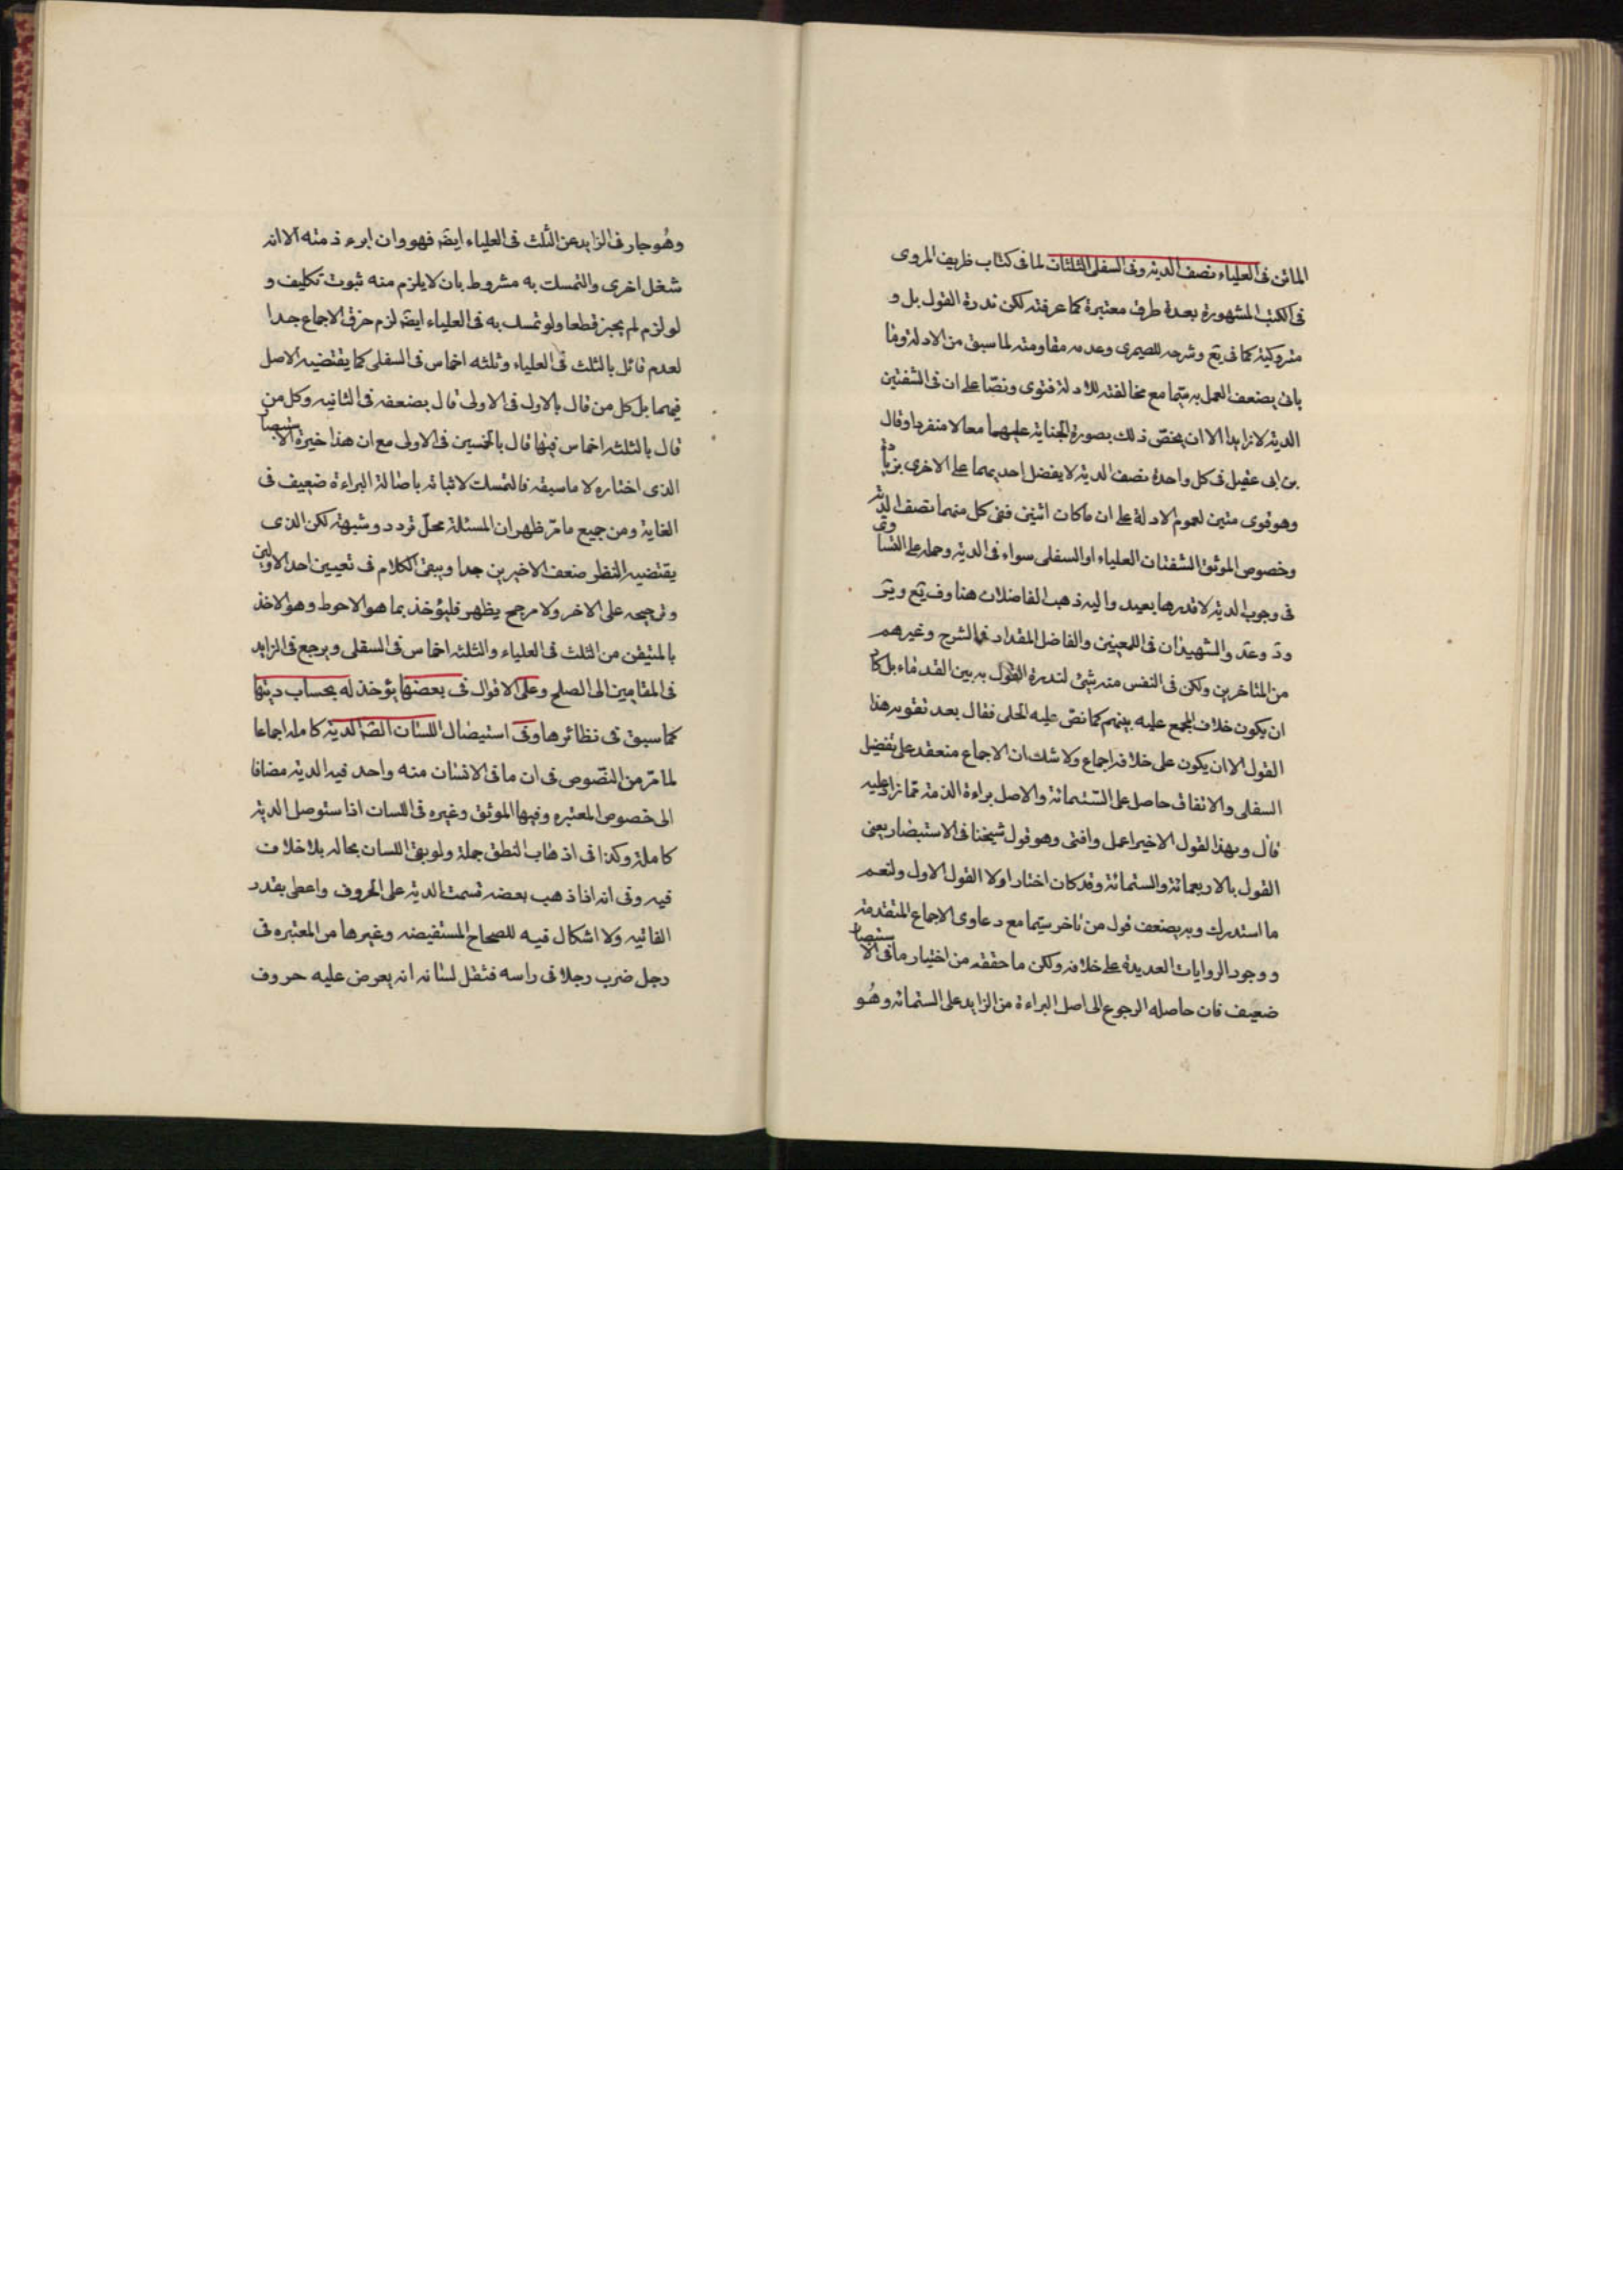 الماتن فى العلياء نصف الدية وفى السفلى الثلثان لما فى كتاب ظريف المروى
فى الكتب المشهورة بعدة طرق معتبرة كما عرفته لكن ندرة القول بل و
متروكيته كما فى يع وشرحه للصيمرى وعدم مقاومته لما سبق من الادلة وما
ياتى يضعف العمل به سيّما مع مخالفته للادلة فتوى ونصّا على ان فى الشفتين
الدية لا زايدا الا ان يختصّ ذلك بصورة الجناية عليهما معا لا منفردا وقال
بن ابى عقيل فى كل واحدة نصف الدية لا يفضل احديهما على الاخرى بزيادة
وهو قوى متين لعموم الادلة على ان ما كان اثنين ففى كل منهما نصف الدية
وخصوص الموثق الشفتان العلياء او السفلى سواء فى الدية وحمله على التساوى
فى وجوب الدية لا قدرها بعيد واليه ذهب الفاضلان هنا وفى يع و ير
ود وعد والشهيدان فى اللمعتين والفاضل المقداد فى الشرح وغيرهم
من المتاخرين ولكن فى النفس منه شئ لندرة القول به بين القدماء بل كاد
ان يكون خلاف المجمع عليه بينهم كما نصّ عليه الحلى فقال بعد تقويه هذا
القول الا ان يكون على خلافه اجماع ولا شك ان الاجماع منعقد على تفضيل
السفلى والاتفاق حاصل على الستمائة والاصل براءة الذمة مما زاد عليه
قال وبهذا القول الاخير اعمل وافتى وهو قول شيخنا فى الاستبصار يعنى
القول بالاربعمائة والستمائة وقد كان اختار اولا القول الاول ولنعم
ما استدرك وبه يضعف قول من تاخر سيّما مع دعاوى الاجماع المتقدمة
ووجود الروايات العديدة على خلافه ولكن ما حققه من اختيار ما فى الاستبصار
ضعيف فان حاصله الرجوع الى اصل البراءة من الزايد على الستمائة وهُو
وهُو جار فى الزايد عن الثلث فى العلياء ايضا فهو وان ابرء ذمته الا انه
شغل اخرى والتمسك به مشروط بان لا يلزم منه ثبوت تكليف و
لو لزم لم يجز قطعا ولو تمسك به فى العلياء ايضا لزم خرق الاجماع جدا
لعدم قائل بالثلث فى العلياء وثلثه اخماس فى السفلى كما يقتضيه الاصل
فيهما بل كل من قال بالاول فى الاولى قال بضعفه فى الثانيه وكل من
قال بالثلثه اخماس فيها قال بالخمسين فى الاولى مع ان هذا خيرة الاستبصار
الذى اختاره لا ما سبقه فالتمسك لاثباته باصالة البراءة ضعيف فى
الغاية ومن جميع ما مرّ ظهر ان المسئلة محلّ تردد وشبهة لكن الذى
يقتضيه النظر ضعف الاخيرين جدا ويبقى الكلام فى تعيين احد الاولين
وترجيحه على الاخر ولا مرجح يظهر فليؤخذ بما هو الاحوط وهو الاخذ
بالمتيقن من الثلث فى العلياء والثلثه اخماس فى السفلى ويرجع فى الزايد
فى المقامين الى الصلح وعلى الاقوال فى بعضها يؤخذ له بحساب ديتها
كما سبق فى نظائرها وفى استيصال اللسان الصّ الدية كامله اجماعا
لما مرّ من النصوص فى ان ما فى الانسان منه واحد فيه الدية مضافا
الى خصوص المعتبره وفيها الموثق وغيره فى اللسان اذا ستوصل الدية
كاملة وكذا فى اذهاب النطق جملة ولو بقى اللسان بحاله بلا خلاف
فيه وفى انه اذا ذهب بعضه قسمت الدية على الحروف واعطى بقدر
الفائيه ولا اشكال فيه للصحاح المستفيضه وغيرها من المعتبره فى
رجل ضرب رجلا فى راسه فثقل لسانه انه يعرض عليه حروف